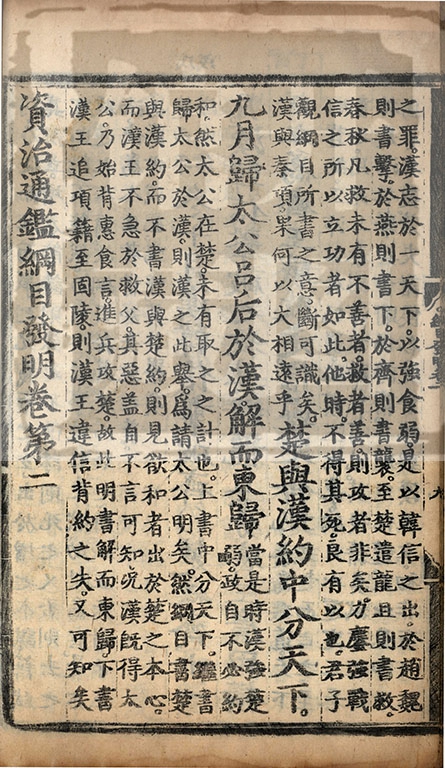 之罪。漢志於一天下。以強食弱。是以韓信之出於趙魏
則書擊。於燕則書下。於齊則書襲。至楚遣龍且則書救。
春秋凡救未有不善者。救者善。則攻者非矣。力鏖強戰
信之所以立功者如此。他時不得其死。良有以也。君子
觀綱目所書之意。斷可識矣。
漢與秦項果何以大相遠乎
楚與漢約中分天下。
九月歸太公呂后於漢解而東歸
當是時漢強楚
弱。政自不必約
和。然太公在楚。未有取之之計也。上書中分天下。繼書
歸太公於漢。則漢之此舉。爲請太公明矣。然綱目書楚
與漢約。而不書漢與楚約。則見欲和者出於楚之本心。
而漢王不急於救父。其惡蓋自不言可知。況漢既得太
公。乃始背惠食言。進兵攻楚。故此明書解而東歸。下書
漢王追項籍至固陵。則漢王違信背約之失。又可知矣
資治通鑑綱目發明卷第二